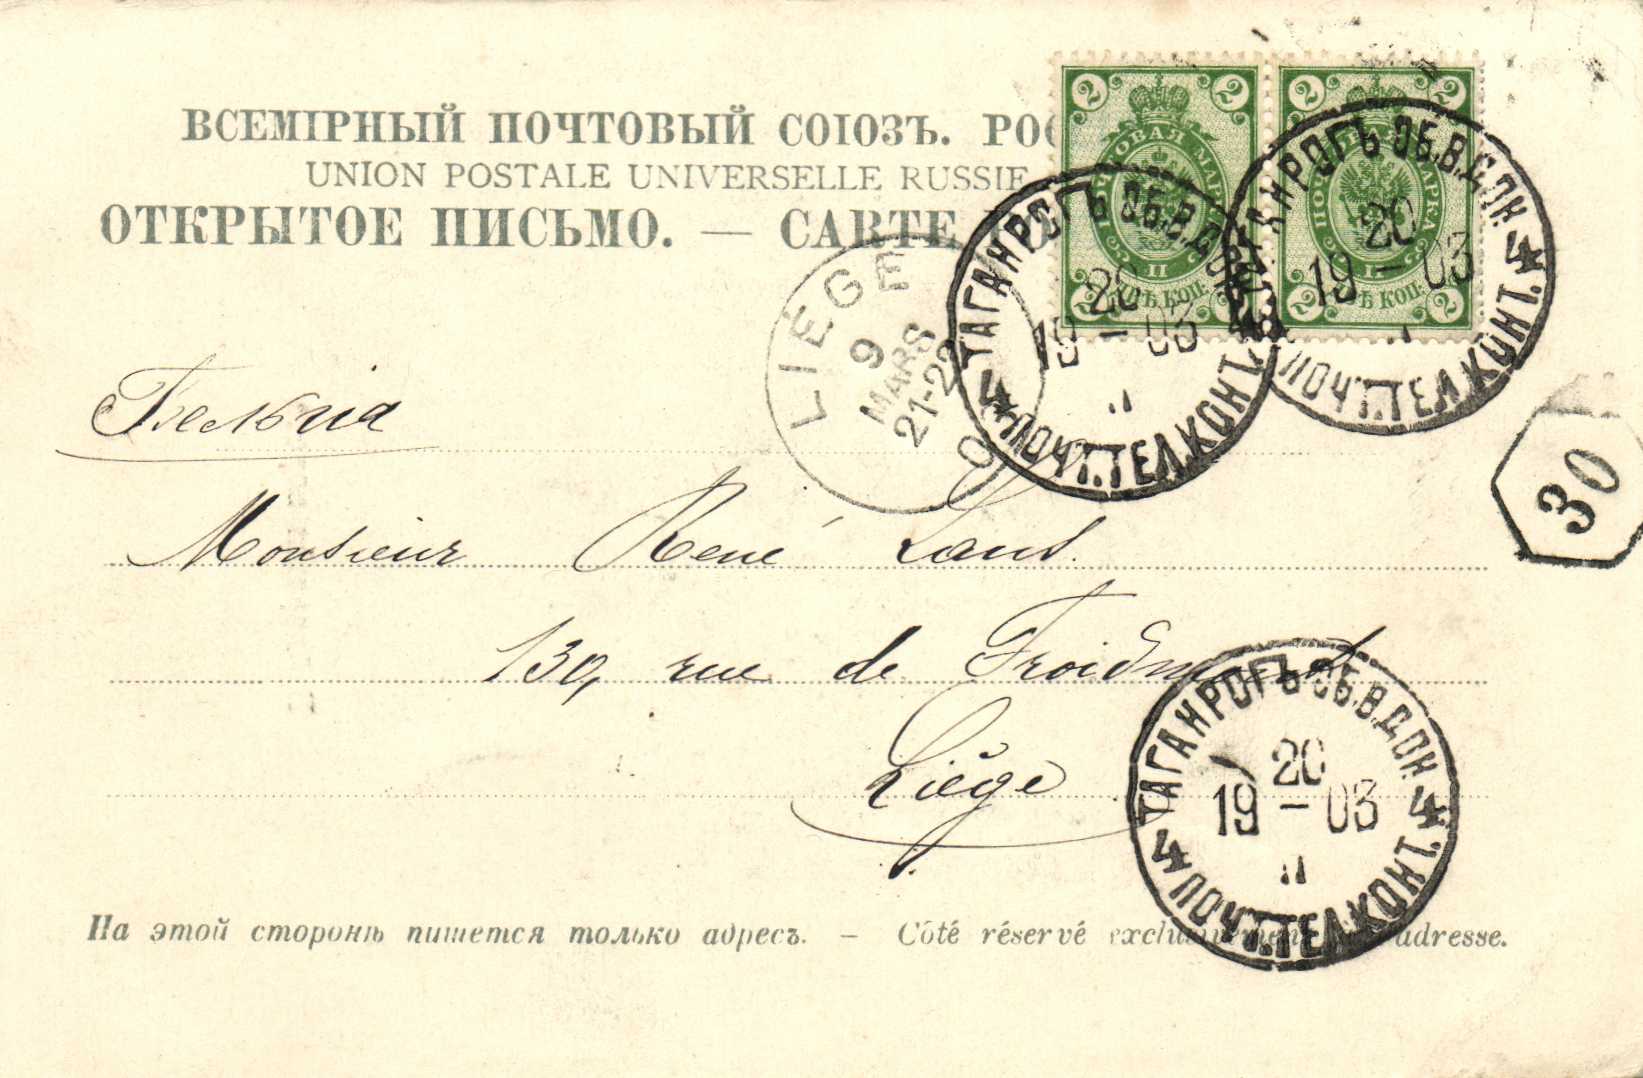 ВСЕМІРНЫЙ ПОЧТОВЫЙ СОЮЗЪ.
UNION POSTALE UNIVERSELLE RUSSIE
ОТКРЫТОЕ ПИСЬМО. — CARTE
2 2
ПОЧТОВАЯ МАРКА
2 2
ПОЧТОВАЯ МАРКА
ТАГАНРОГЪ ОБ.В.ДОН.
20
19 – 03
II
4 ПОЧТ.ТЕЛ.КОНТ. 4
ТАГАНРОГЪ ОБ.В.ДОН.
20
19 – 03
ПОЧТ.ТЕЛ.КОНТ. 4
LIÉGE
9
MARS
21-22
30
Бельгія
Monsieur René
130, rue de Froidmont
Liège
ТАГАНРОГЪ ОБ.В.ДОН.
20
19 – 03
II
4 ПОЧТ.ТЕЛ.КОНТ. 4
На этой сторонѣ пишется только адресъ. – Côté réservé exclusivement à l'adresse.